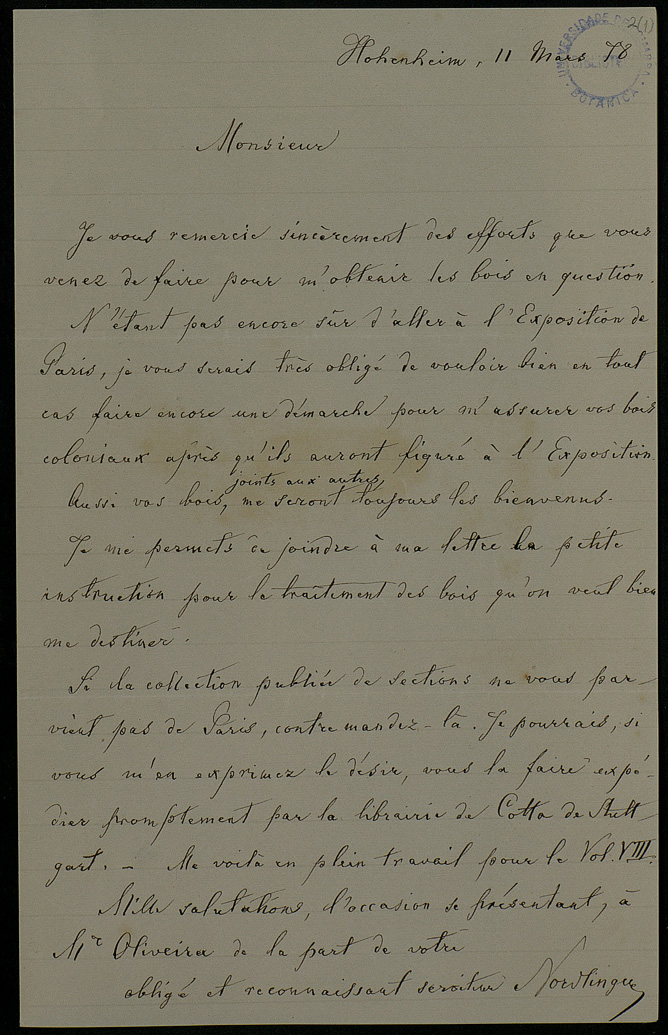 2(1)
UNIVERSIDADE DE COIMBRA
BOTANICA
Hohenheim, 11 Mars 78
Monsieur
Je vous remercie sincèrement des efforts que vous
venez de faire pour m'obtenir les bois en question.
N'étant pas encore sûr d'aller à l'Exposition de
Paris, je vous serais très obligé de vouloir bien en tout
cas faire encore une démarche pour m'assurer vos bois
coloniaux après qu'ils auront figuré à l'Exposition.
joints aux autres,
Aussi vos bois, me seront toujours les bienvenus.
Je me permets de joindre à ma lettre la petite
instruction pour le traitement des bois qu'on veut bien
me destiner.
Si la collection publiée de sections ne vous par-
vient pas de Paris, contremandez-la. Je pourrais, si
vous m'en exprimez le désir, vous la faire expé-
dier promptement par la librairie de Cotta de Stutt-
gart. — Me voilà en plein travail pour le Vol. VIII.
Mille salutations, l'occasion se présentant, à
Mr Oliveira de la part de votre
obligé et reconnaissant serviteur Nördlinger